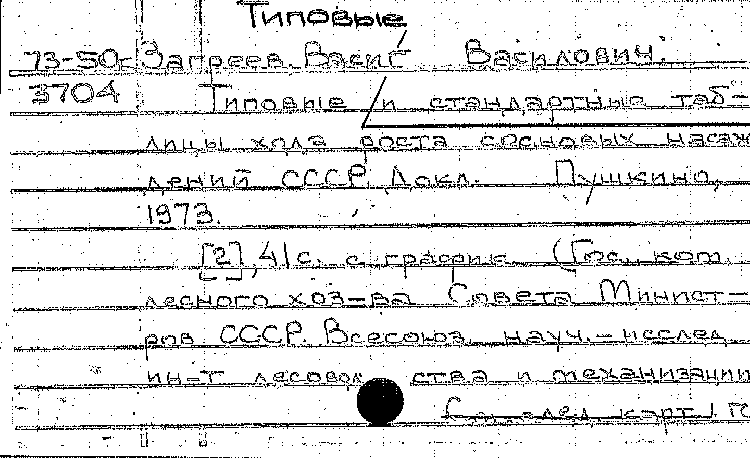 Типовые
73-50с Загреев, Васиг Василович.
3704 Типовые и стандартные таб-
лицы хода роста сосновых насаж
дений СССР. Докл. Пушкино,
1973.
[2], 41 с. с график (Гос. ком.
лесного хоз-ва Совета Минист-
ров СССР. Всесоюз. науч.-исслед
ин-т лесовод ства и механизации
След. карт.